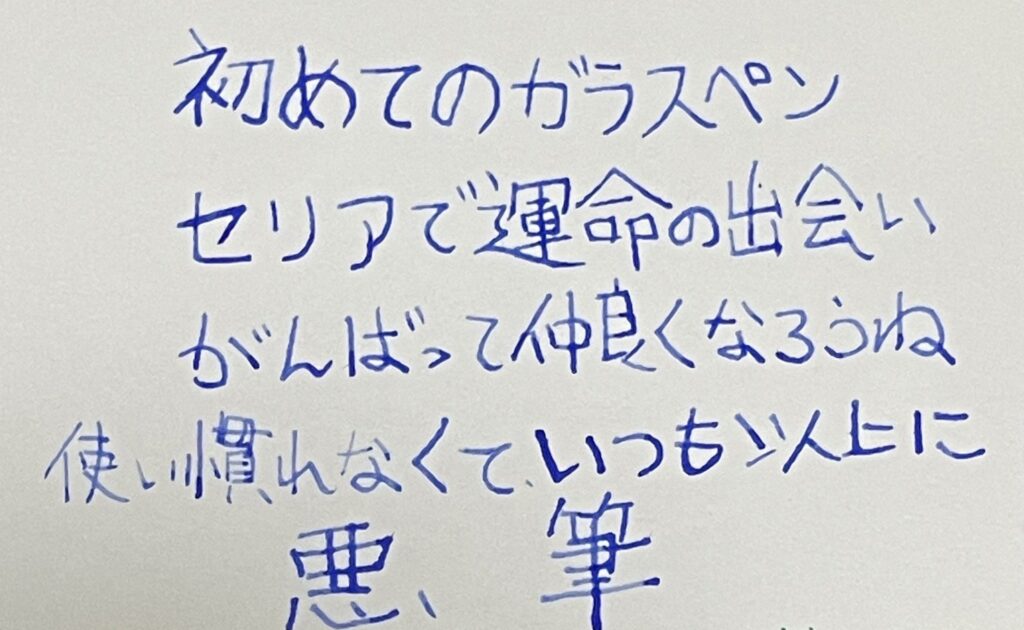 初めてのガラスペン
セリアで運命の出会い
がんばって仲良くなろうね
使い慣れなくていつも以上に
悪筆